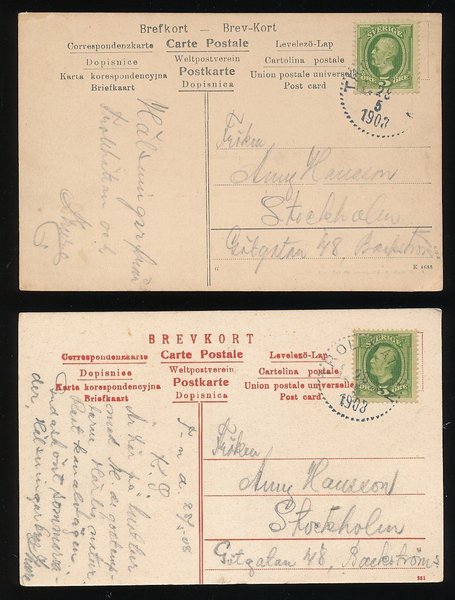 Brefkort — Brev-Kort
Correspondenzkarte Carte Postale Levelező-Lap
Dopisnice Weltpostverein Cartolina postale
Karta korespondencyjna Postkarte Union postale universelle
Briefkaart Dopisnica Post card
SVERIGE
5
ÖRE ÖRE
28
5
1908
Hälsningar från
Trollhättan och
Fröken
Anny Hansson
Stockholm
Götgatan 48, Backströms
G
K 4688
BREVKORT
Correspondenzkarte Carte Postale Levelező-Lap
Dopisnice Weltpostverein Cartolina postale
Karta korespondencyjna Postkarte Union postale universelle
Briefkaart Dopisnica Post card
SVERIGE
5
ÖRE ÖRE
1908
T-n a. 28/5-08
K. S.
är här på
med
härlig natur.
der, Hälsningar
Fröken
Anny Hansson
Stockholm
Götgatan 48, Backströms
321